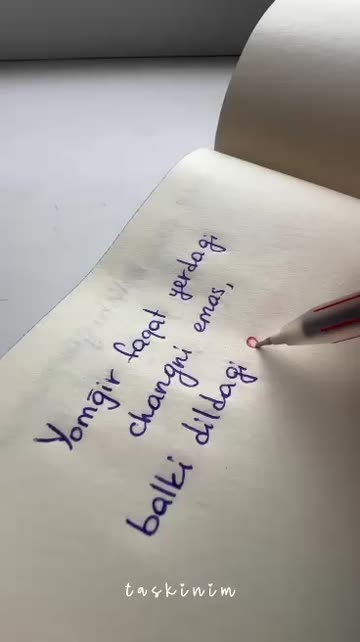 Yomg̃ir faqat yerdagi
changni emas,
balki dildagi
taskinim